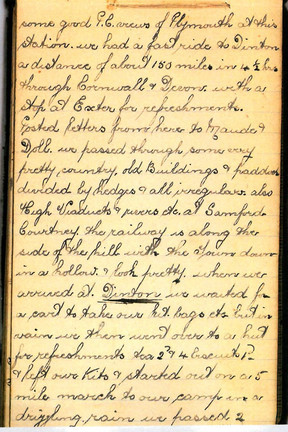 some good P.C. views of Plymouth at this
station. we had a fast ride to Dinton
a distance of about 150 miles in 4½ hrs
through Cornwall & Devon. with a
stop at Exter for refreshments.
Posted letters from here to Maude &
Doll. we passed through some very
pretty country, old Buildings & paddocks
divided by hedges & all irregular. also
High Viaducts & rivers etc. at Samford
Courtney. the railway is along the
side of the hill with the Town down
in a hollow. & look pretty. when we
arrived at. Dinton we waited for
a cart to take our kit bags etc but in
vain we then went over to a hut
for refreshments tea 2ᵈ 4 Biscuits 1ᵈ
& left our Kits & started out on a 5
mile march to our camp in a
drizzling rain we passed 2